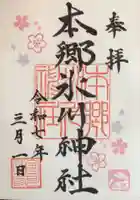 奉拝
本郷氷川神社
令和七年
三月一日